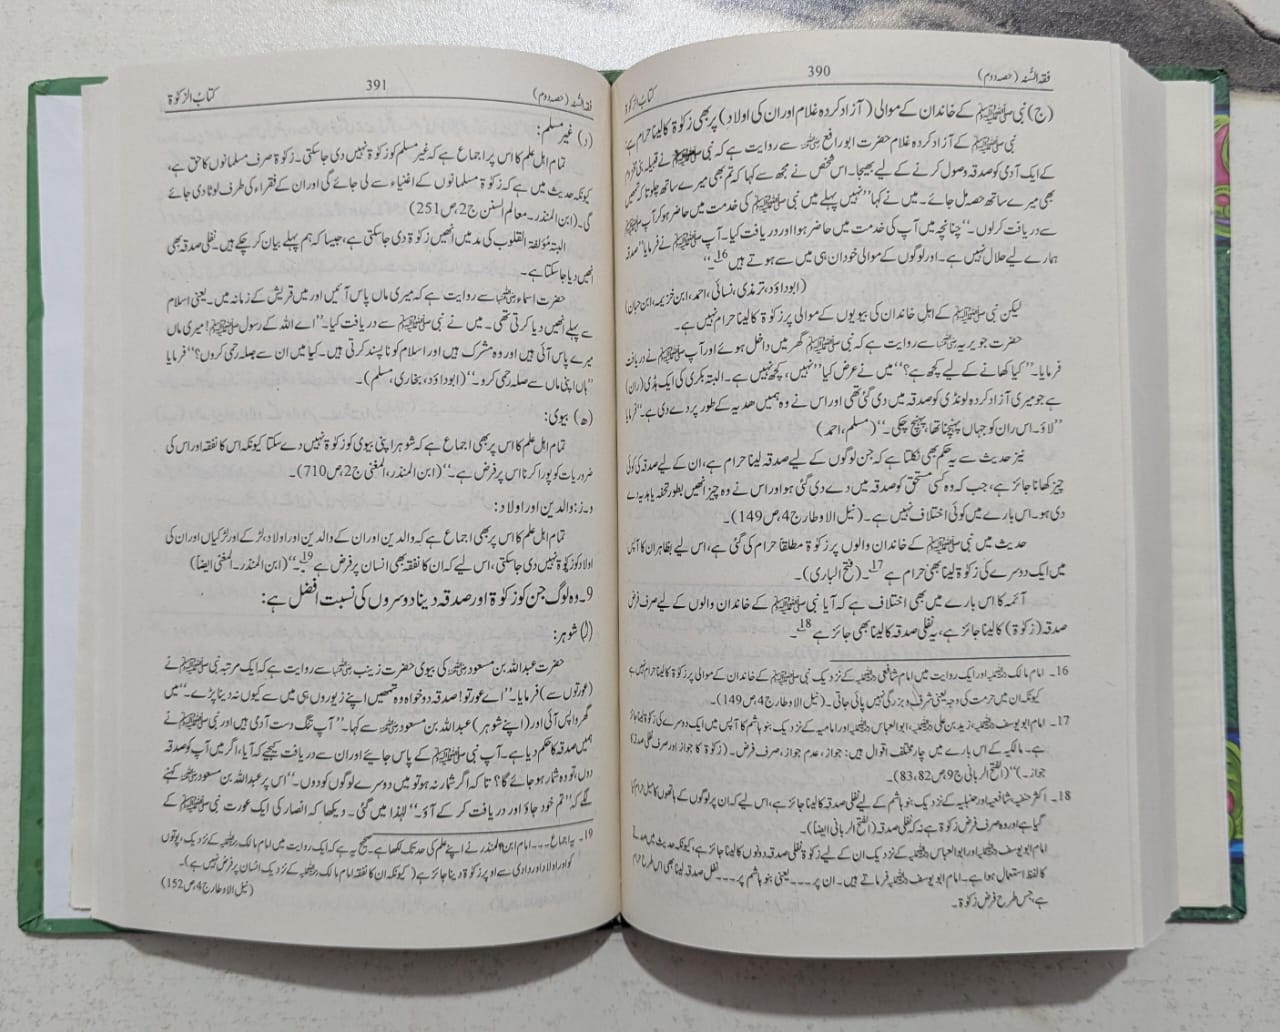 فقہ السُّنہ (حصہ دوم)
390
کتابُ الزکوٰۃ
(ج) نبی ﷺ کے خاندان کے موالی (آزاد کردہ غلام اور ان کی اولاد) پر بھی زکوٰۃ کا لینا حرام ہے
نبی ﷺ کے آزاد کردہ غلام حضرت ابو رافع رضی اللہ عنہ سے روایت ہے کہ نبی ﷺ نے قبیلہ بنی مخزوم
کے ایک آدمی کو صدقہ وصول کرنے کے لیے بھیجا۔ اس شخص نے مجھ سے کہا کہ تم بھی میرے ساتھ چلو تاکہ تمہیں
بھی میرے ساتھ حصہ مل جائے۔ میں نے کہا ”نہیں پہلے میں نبی ﷺ کی خدمت میں حاضر ہوکر آپ ﷺ
سے دریافت کرلوں۔“ چنانچہ میں آپ کی خدمت میں حاضر ہوا اور دریافت کیا۔ آپ ﷺ نے فرمایا ”صدقہ
ہمارے لیے حلال نہیں ہے۔ اور لوگوں کے موالی خود ان ہی میں سے ہوتے ہیں 16۔“
(ابوداؤد، ترمذی، نسائی، احمد، ابن خزیمہ، ابن حبان)
لیکن نبی ﷺ کے اہل خاندان کی بیویوں کے موالی پر زکوٰۃ کا لینا حرام نہیں ہے۔
حضرت جویریہ رضی اللہ عنہا سے روایت ہے کہ نبی ﷺ گھر میں داخل ہوئے اور آپ ﷺ نے دریافت
فرمایا۔ ”کیا کھانے کے لیے کچھ ہے؟“ میں نے عرض کیا ”نہیں، کچھ نہیں ہے۔ البتہ بکری کی ایک ہڈی (ران)
ہے جو میری آزاد کردہ لونڈی کو صدقہ میں دی گئی تھی اور اس نے وہ ہمیں ھدیہ کے طور پر دے دی ہے۔“ فرمایا
”لاؤ۔ اس ران کو جہاں پہنچنا تھا، پہنچ چکی۔“ (مسلم، احمد)
نیز حدیث سے یہ حکم بھی نکلتا ہے کہ جن لوگوں کے لیے صدقہ لینا حرام ہے، ان کے لیے صدقہ کی کوئی
چیز کھانا جائز ہے، جب کہ وہ کسی مستحق کو صدقہ میں دے دی گئی ہو اور اس نے وہ چیز انھیں بطور تحفہ یا ہدیہ دے
دی ہو۔ اس بارے میں کوئی اختلاف نہیں ہے۔ (نیل الاوطار ج4، ص149)۔
حدیث میں نبی ﷺ کے خاندان والوں پر زکوٰۃ مطلقاً حرام کی گئی ہے، اس لیے بظاہر ان کا آپس
میں ایک دوسرے کی زکوٰۃ لینا بھی حرام ہے 17۔ (فتح الباری)۔
آئمہ کا اس بارے میں بھی اختلاف ہے کہ آیا نبی ﷺ کے خاندان والوں کے لیے صرف فرض
صدقہ (زکوٰۃ) کا لینا جائز ہے، یہ نفلی صدقہ کا لینا بھی جائز ہے 18۔
16۔ امام مالک رحمۃ اللہ علیہ اور ایک روایت میں امام شافعی رحمۃ اللہ علیہ کے نزدیک نبی ﷺ کے خاندان کے موالی پر زکوٰۃ کا لینا حرام نہیں ہے
کیونکہ ان میں حرمت کی وجہ یعنی شرف و بزرگی نہیں پائی جاتی۔ (نیل الاوطار ج4، ص149)۔
17۔ امام ابو یوسف رحمۃ اللہ علیہ، زید بن علی رحمۃ اللہ علیہ، ابو العباس رحمۃ اللہ علیہ اور امامیہ کے نزدیک بنو ہاشم کا آپس میں ایک دوسرے کی زکوٰۃ لینا جائز
ہے۔ مالکیہ کے اس بارے میں چار مختلف اقوال ہیں: جواز، عدم جواز، صرف فرض۔ (زکوٰۃ) کا جواز اور صرف نفلی صدقہ کا
جواز۔)“ (الفتح الربانی ج9 ص82، 83)۔
18۔ اکثر حنفیہ، شافعیہ اور حنبلیہ کے نزدیک بنو ہاشم کے لیے نفلی صدقہ کا لینا جائز ہے، اس لیے کہ ان پر لوگوں کے ہاتھوں کا میل حرام کیا
گیا ہے اور وہ صرف فرض زکوٰۃ ہے نہ کہ نفلی صدقہ (الفتح الربانی ایضاً)۔
امام ابو یوسف رحمۃ اللہ علیہ اور ابو العباس رحمۃ اللہ علیہ کے نزدیک ان کے لیے زکوٰۃ نفلی صدقہ دونوں کا لینا جائز ہے، کیونکہ حدیث میں صدقہ
کا لفظ استعمال ہوا ہے۔ امام ابو یوسف رحمۃ اللہ علیہ فرماتے ہیں۔ ان پر ۔۔۔۔ یعنی بنو ہاشم پر ۔۔۔۔ نفلی صدقہ لینا بھی اسی طرح حرام
ہے، جس طرح فرض زکوٰۃ۔
فقہ السُّنہ (حصہ دوم)
391
کتابُ الزکوٰۃ
(د) غیر مسلم:
تمام اہل علم کا اس پر اجماع ہے کہ غیر مسلم کو زکوٰۃ نہیں دی جاسکتی۔ زکوٰۃ صرف مسلمانوں کا حق ہے،
کیونکہ حدیث میں ہے کہ زکوٰۃ مسلمانوں کے اغنیاء سے لی جائے گی اور ان کے فقراء کی طرف لوٹا دی جائے
گی۔ (ابن المنذر۔ معالم السنن ج2، ص251)
البتہ مؤلفۃ القلوب کی مد میں انھیں زکوٰۃ دی جاسکتی ہے، جیسا کہ ہم پہلے بیان کرچکے ہیں۔ نفلی صدقہ بھی
انھیں دیا جاسکتا ہے۔
حضرت اسماء رضی اللہ عنہا سے روایت ہے کہ میری ماں پاس آئیں اور میں قریش کے زمانہ میں۔ یعنی اسلام
سے پہلے انھیں دیا کرتی تھی۔ میں نے نبی ﷺ سے دریافت کیا۔ ”اے اللہ کے رسول ﷺ! میری ماں
میرے پاس آئی ہیں اور وہ مشرک ہیں اور اسلام کو ناپسند کرتی ہیں۔ کیا میں ان سے صلہ رحمی کروں؟“ فرمایا
”ہاں اپنی ماں سے صلہ رحمی کرو۔“ (ابوداؤد، بخاری، مسلم)۔
(ھ) بیوی:
تمام اہل علم کا اس پر بھی اجماع ہے کہ شوہر اپنی بیوی کو زکوٰۃ نہیں دے سکتا کیونکہ اس کا نفقہ اور اس کی
ضروریات کو پورا کرنا اس پر فرض ہے۔“ (ابن المنذر، المغنی ج2، ص710)۔
و۔ز: والدین اور اولاد:
تمام اہل علم کا اس پر بھی اجماع ہے کہ والدین اور ان کے والدین اور اولاد، لڑکے اور لڑکیاں اور ان کی
اولاد کو زکوٰۃ نہیں دی جاسکتی، اس لیے کہ ان کا نفقہ بھی انسان پر فرض ہے 19۔“ (ابن المنذر۔ المغنی ایضاً)
9۔ وہ لوگ جن کو زکوٰۃ اور صدقہ دینا دوسروں کی نسبت افضل ہے:
(ا) شوہر:
حضرت عبداللہ بن مسعود رضی اللہ عنہ کی بیوی حضرت زینب رضی اللہ عنہا سے روایت ہے کہ ایک مرتبہ نبی ﷺ نے
(عورتوں سے) فرمایا۔ ”اے عورتو! صدقہ دو خواہ وہ تمھیں اپنے زیوروں ہی میں سے کیوں نہ دینا پڑے۔“ میں
گھر واپس آئی اور (اپنے شوہر) عبداللہ بن مسعود رضی اللہ عنہ سے کہا۔ ”آپ تنگ دست آدمی ہیں اور نبی ﷺ نے
ہمیں صدقہ کا حکم دیا ہے۔ آپ نبی ﷺ کے پاس جائیے اور ان سے دریافت کیجیے کہ آیا، اگر میں آپ کو صدقہ
دوں، تو وہ شمار ہو جائے گا؟ تاکہ اگر شمار نہ ہو تو میں دوسرے لوگوں کو دوں۔“ اس پر عبداللہ بن مسعود رضی اللہ عنہ کہنے
لگے کہ ”تم خود جاؤ اور دریافت کرکے آؤ۔“ لہٰذا میں گئی۔ دیکھا کہ انصار کی ایک عورت نبی ﷺ کے
19۔ یہ اجماع ۔۔۔۔ امام ابن المنذر نے اپنے علم کی حد تک لکھا ہے۔ صحیح یہ ہے کہ ایک روایت میں امام مالک رحمۃ اللہ علیہ کے نزدیک، پوتوں
کو اور اولاد اور دادی سے اوپر زکوٰۃ دینا جائز ہے (کیونکہ ان کا نفقہ امام مالک رحمۃ اللہ علیہ کے نزدیک انسان پر فرض نہیں ہے)۔
(نیل الاوطار ج4، ص152)